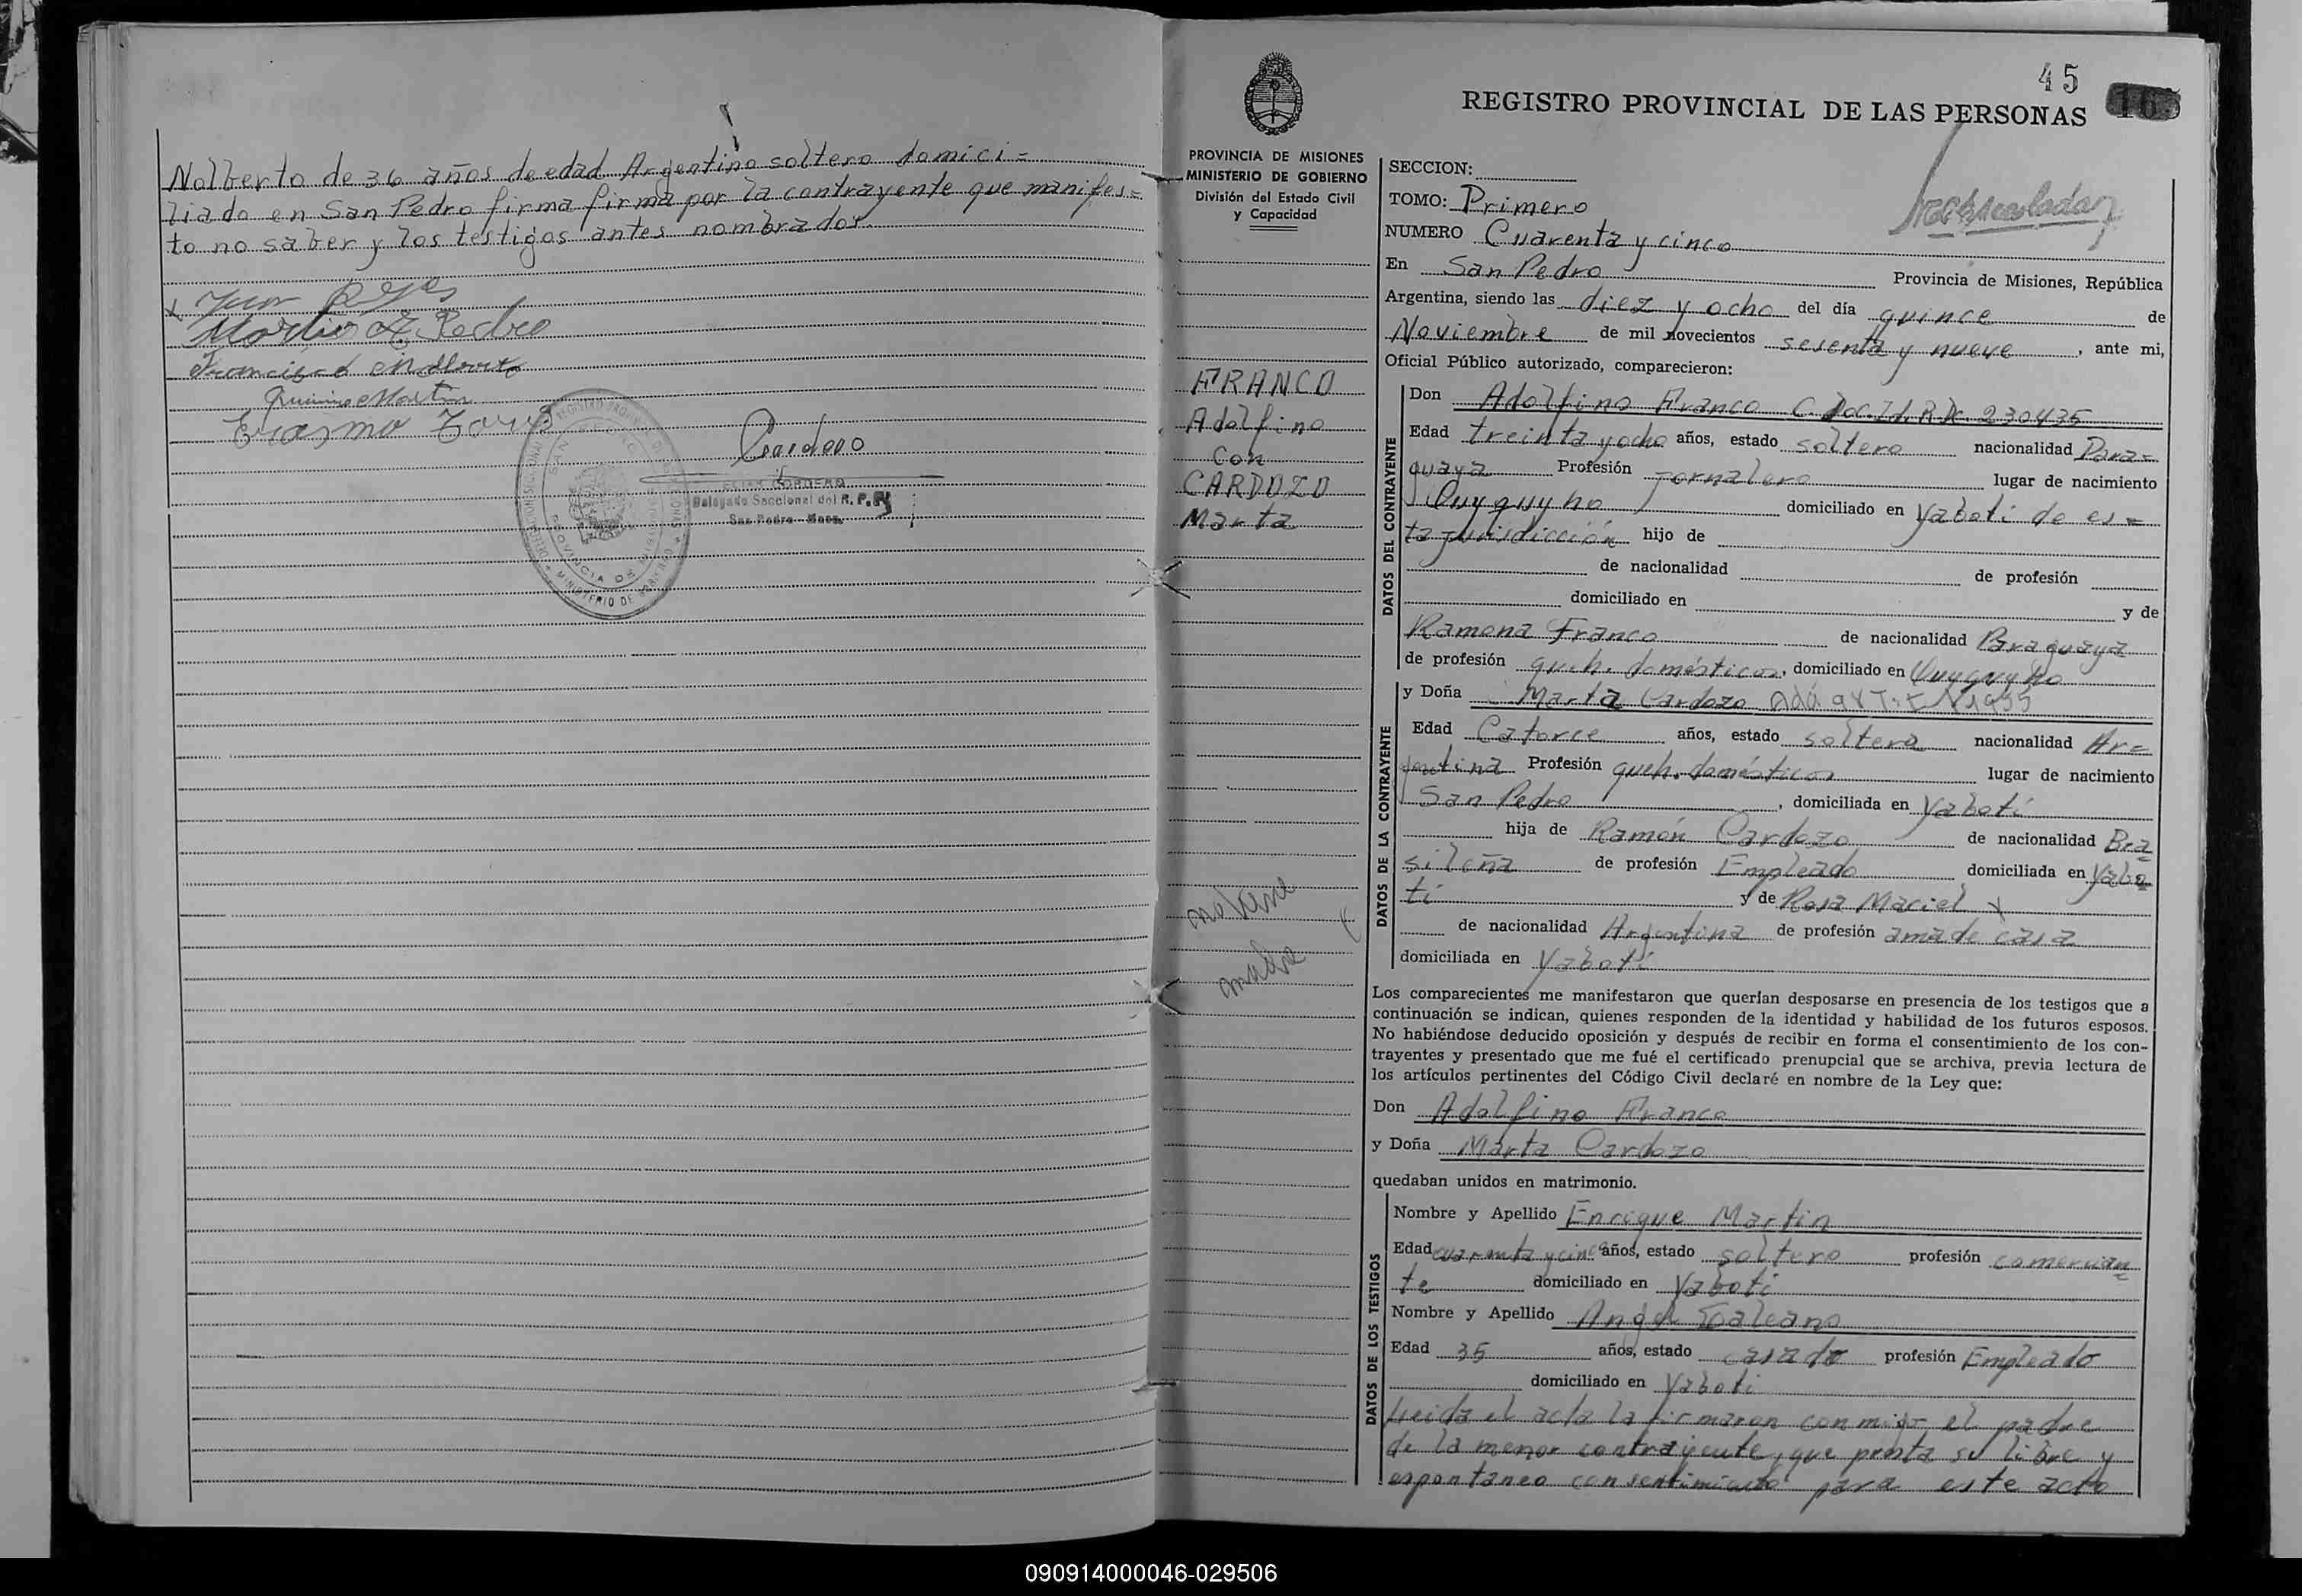 Nolberto de 36 años de edad Argentino soltero domici=
liado en San Pedro firma firma por la contrayente que manifes=
to no saber y los testigos antes nombrados.
Erasmo
Cordero
ELIAS CORDERO
Delegado Seccional del R. P. P.
San Pedro - Mnes.
PROVINCIA DE MISIONES
MINISTERIO DE GOBIERNO
División del Estado Civil
y Capacidad
FRANCO
Adolfino
Con
CARDOZO
Marta
45
REGISTRO PROVINCIAL DE LAS PERSONAS
SECCION:
TOMO: Primero
NUMERO Cuarenta y cinco
En San Pedro Provincia de Misiones, República
Argentina, siendo las diez y ocho del día quince de
Noviembre de mil novecientos sesenta y nueve, ante mi,
Oficial Público autorizado, comparecieron:
DATOS DEL CONTRAYENTE
Don Adolfino Franco 230435
Edad treinta y ocho años, estado soltero nacionalidad Para=
guaya Profesión Jornalero lugar de nacimiento
domiciliado en Yaboti de es=
ta jurisdicción hijo de
de nacionalidad de profesión
domiciliado en y de
Ramona Franco de nacionalidad Paraguaya
de profesión queh. domésticos, domiciliado en
DATOS DE LA CONTRAYENTE
y Doña Marta Cardozo
Edad Catorce años, estado soltera nacionalidad Ar=
gentina Profesión queh. domésticos lugar de nacimiento
San Pedro, domiciliada en Yabotí
hija de Ramón Cardozo de nacionalidad Bra
sileña de profesión Empleado domiciliada en Yabo
tí y de Rosa Maciel x
de nacionalidad Argentina de profesión ama de casa
domiciliada en Yabotí
Los comparecientes me manifestaron que querían desposarse en presencia de los testigos que a
continuación se indican, quienes responden de la identidad y habilidad de los futuros esposos.
No habiéndose deducido oposición y después de recibir en forma el consentimiento de los con-
trayentes y presentado que me fué el certificado prenupcial que se archiva, previa lectura de
los artículos pertinentes del Código Civil declaré en nombre de la Ley que:
Don Adolfino Franco
y Doña Marta Cardozo
quedaban unidos en matrimonio.
DATOS DE LOS TESTIGOS
Nombre y Apellido Enrique Martin
Edad cuarenta y cinco años, estado soltero profesión comercian
te domiciliado en Yaboti
Nombre y Apellido Angel Galeano
Edad 35 años, estado casado profesión Empleado
domiciliado en Yaboti
Leida el acta la firmaron conmigo el padre
de la menor contrayente, que presta su libre y
espontaneo consentimiento para este acto
090914000046-029506